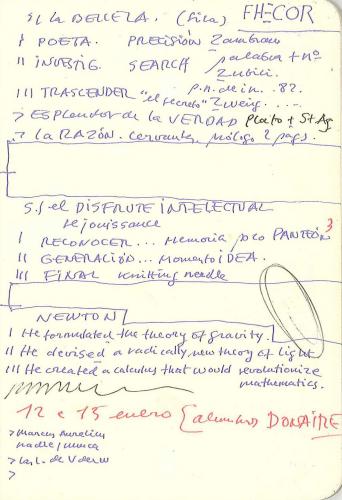 S/ la BELLEZA. (fila) FHECOR
I POETA. PRECISIÓN Zambrano
II INVESTIG. SEARCH palabra + nº
Zubiri.
III TRASCENDER "el secreto" Zweig.
> ESPLENDOR de la VERDAD Plato + St. Ag
> la RAZÓN. Cervantes, prólogo 2 pags.
S/ el DISFRUTE INTELECTUAL
rejouissance
I RECONOCER... Memoria PANTEÓN 3
II GENERACIÓN... Momento IDEA.
III FINAL knitting needle
NEWTON
I He formulated the theory of gravity.
II He devised a radically new theory of light
III He created a calculus that would revolutionize
mathematics.
12 e 15 enero DONAIRE
> Marcus Aurelius
nadie/nunca
>